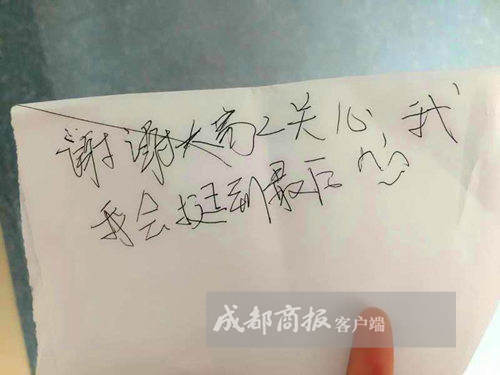 谢谢大家关心,我
我会挺到最后
成都商报客户端